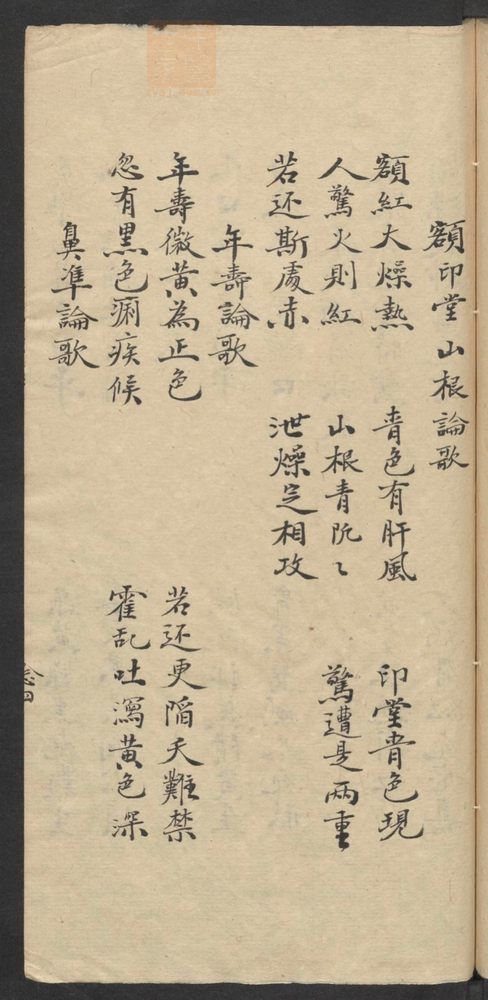 額印堂山根論歌
額紅大燥熱 青色有肝風 印堂青色現
人驚火則紅 山根青阮〻 驚遭是兩重
若还斯處赤 泄燥定相攻
年壽論歌
年壽微黃為正色 若还更陷夭難禁
忽有黑色痢疾候 霍乱吐瀉黃色深
鼻准論歌